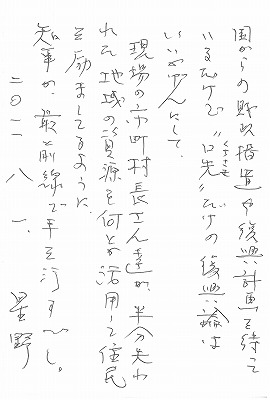 国からの財政措置や復興計画を待って
いるだけで“口先”だけの復興論は
くちさき
いいかげんにして、
現場の市町村長さん達が、半分失わ
れた地域の資源を何とか活用して住民
を励ましてるように、
知事が、最前線で手を汚すべし。
二〇一一 八 一、
星野